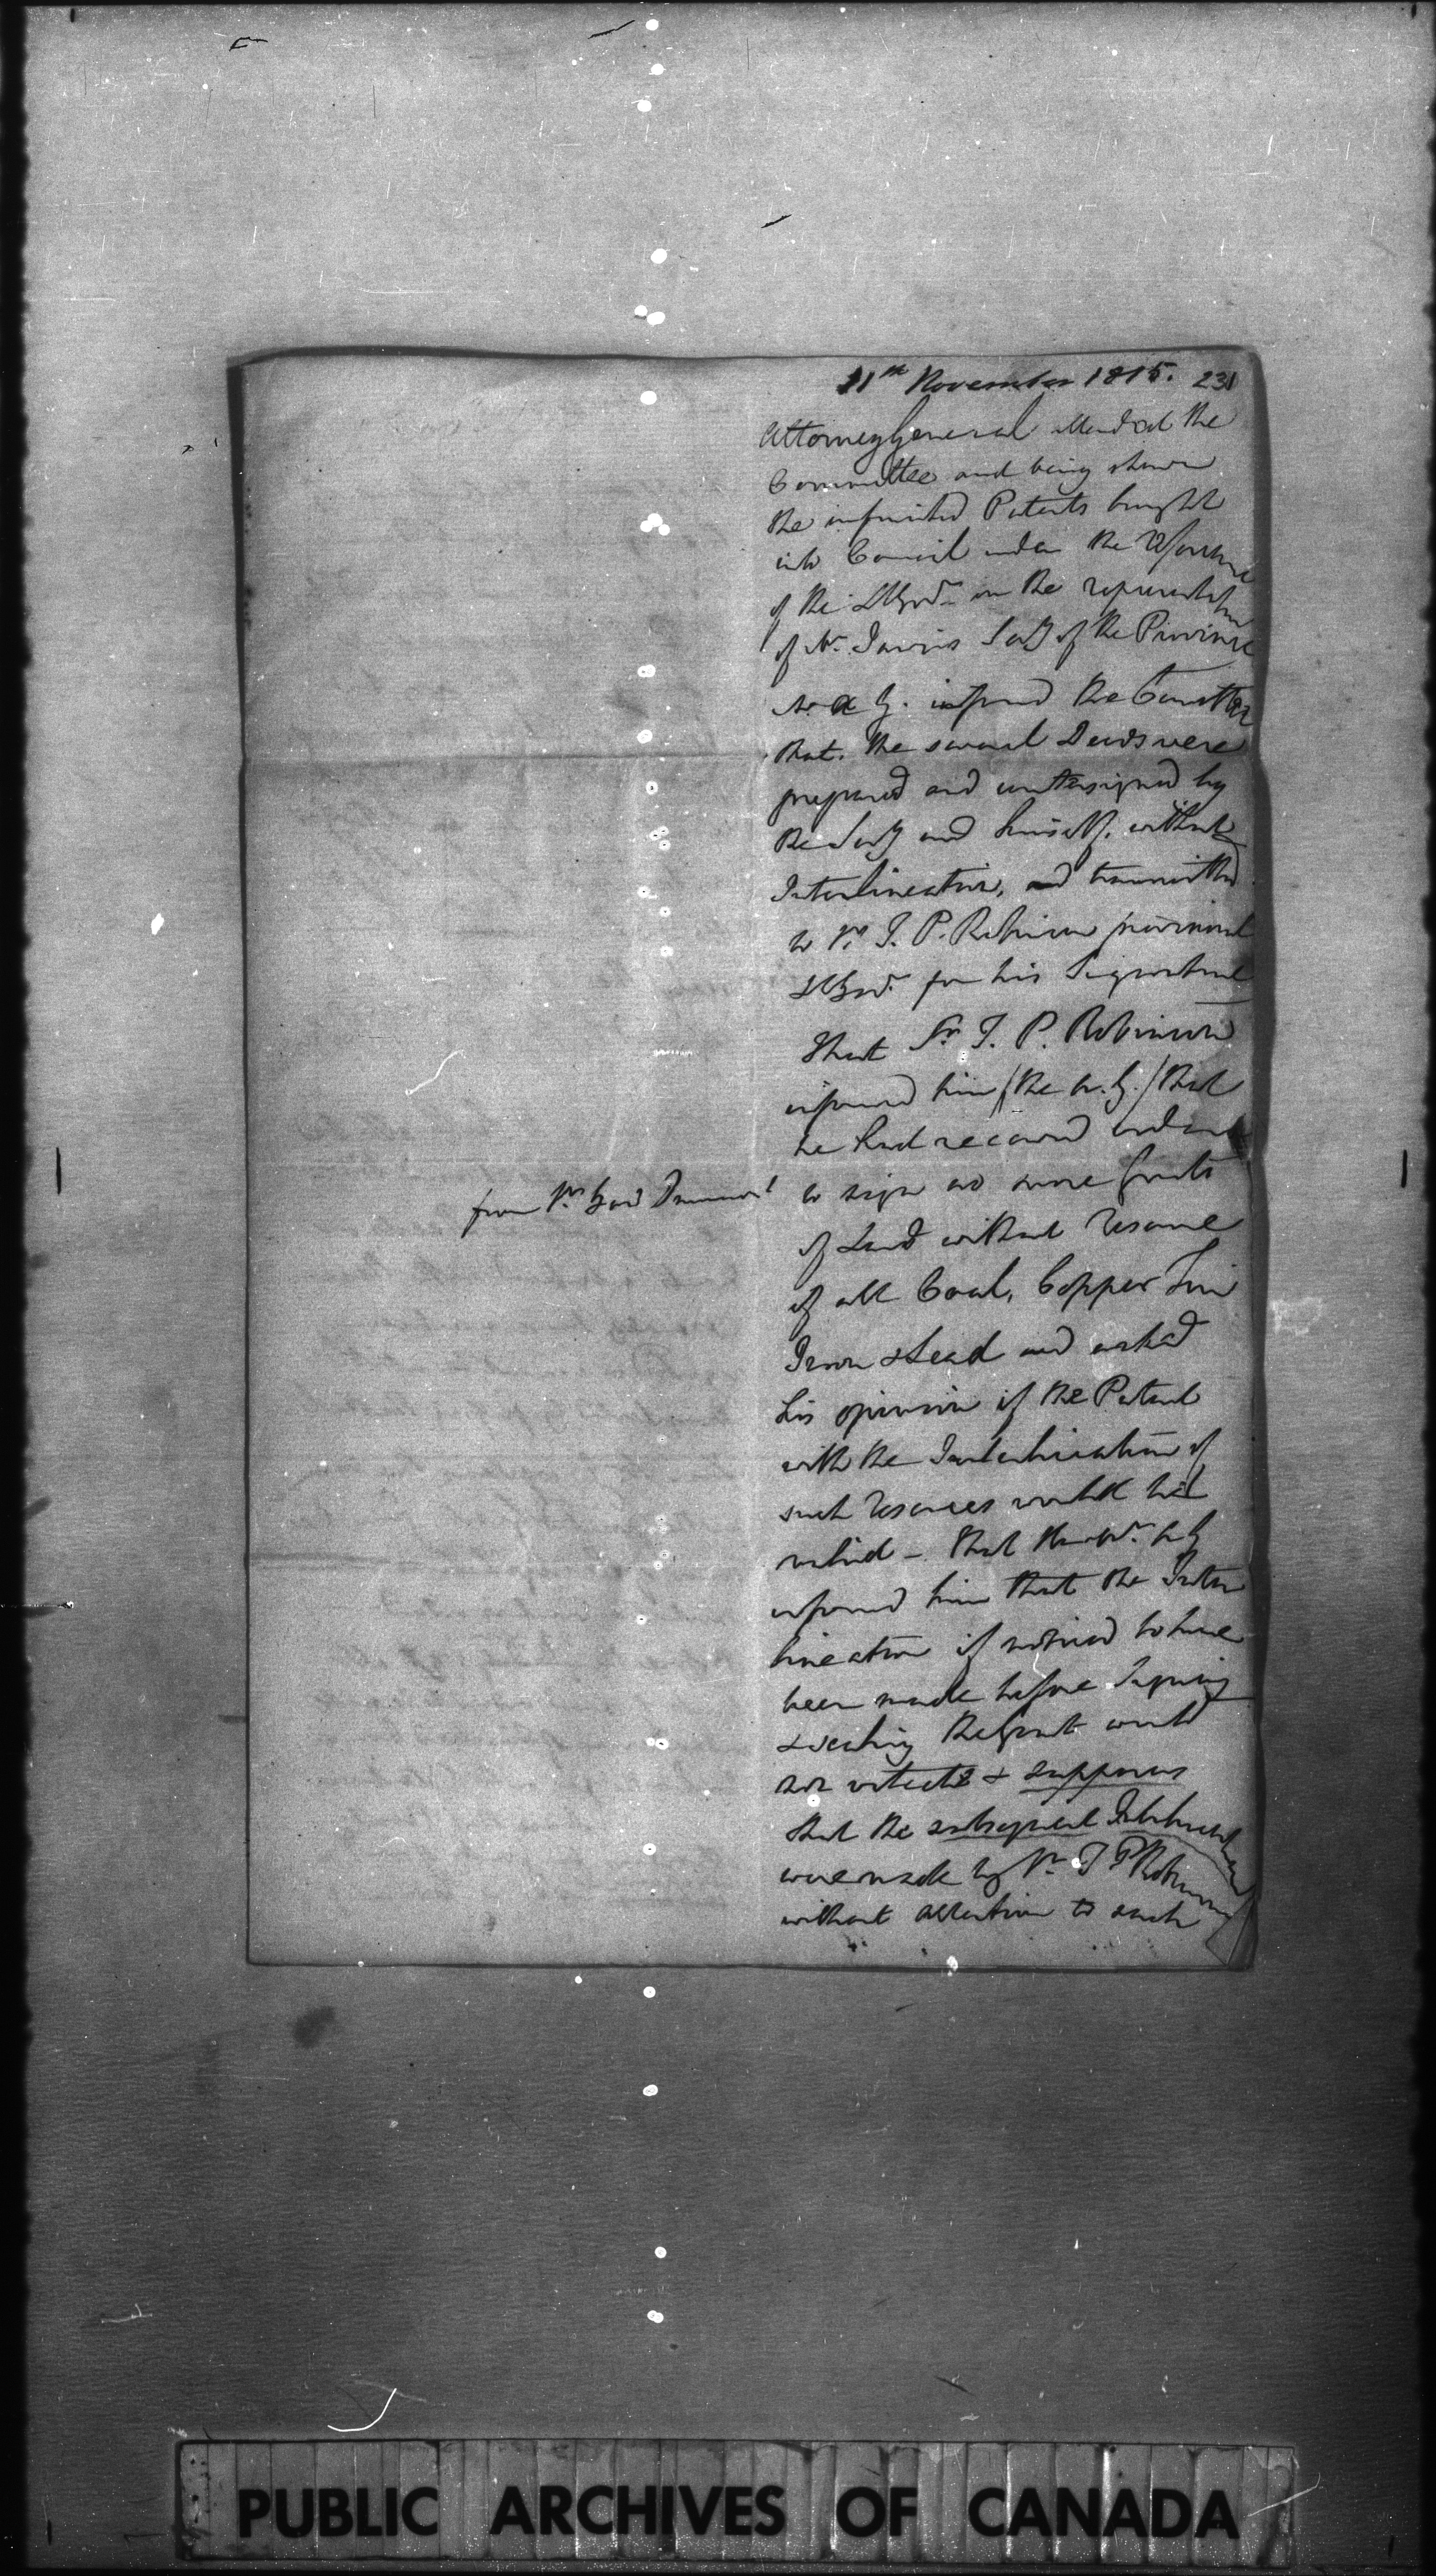 11th November 1815. 231
Attorney General attends at the
Committee and being shewn
the Patents brought
into Council under the Reference
of the Lt Govr on the representation
of Mr Jarvis Secy of the Province
A. G. informed the Committee
that the several Deeds were
prepared and countersigned by
the Secy and himself, without
Interlineation, and transmitted
to Sr F. P. Robinson provisional
Lt Govr for his Signature
That Sr F. P. Robinson
informed him / the A. G. / that
he had received orders
from Sr Gord Drummond
to sign no more Grants
of Land without reserve
of all Coal, Copper Tin
Iron & Lead and asked
his opinion if the Patent
with the Interlineation of
such reserves would be
valid – that the A G
informed him that the Inter
lineation if noticed to have
been made before Signing
& sealing the Grant would
not vitiate & supposes
that the subsequent Interlineations
were made by Sr F P Robinson
without attention to such
PUBLIC ARCHIVES OF CANADA